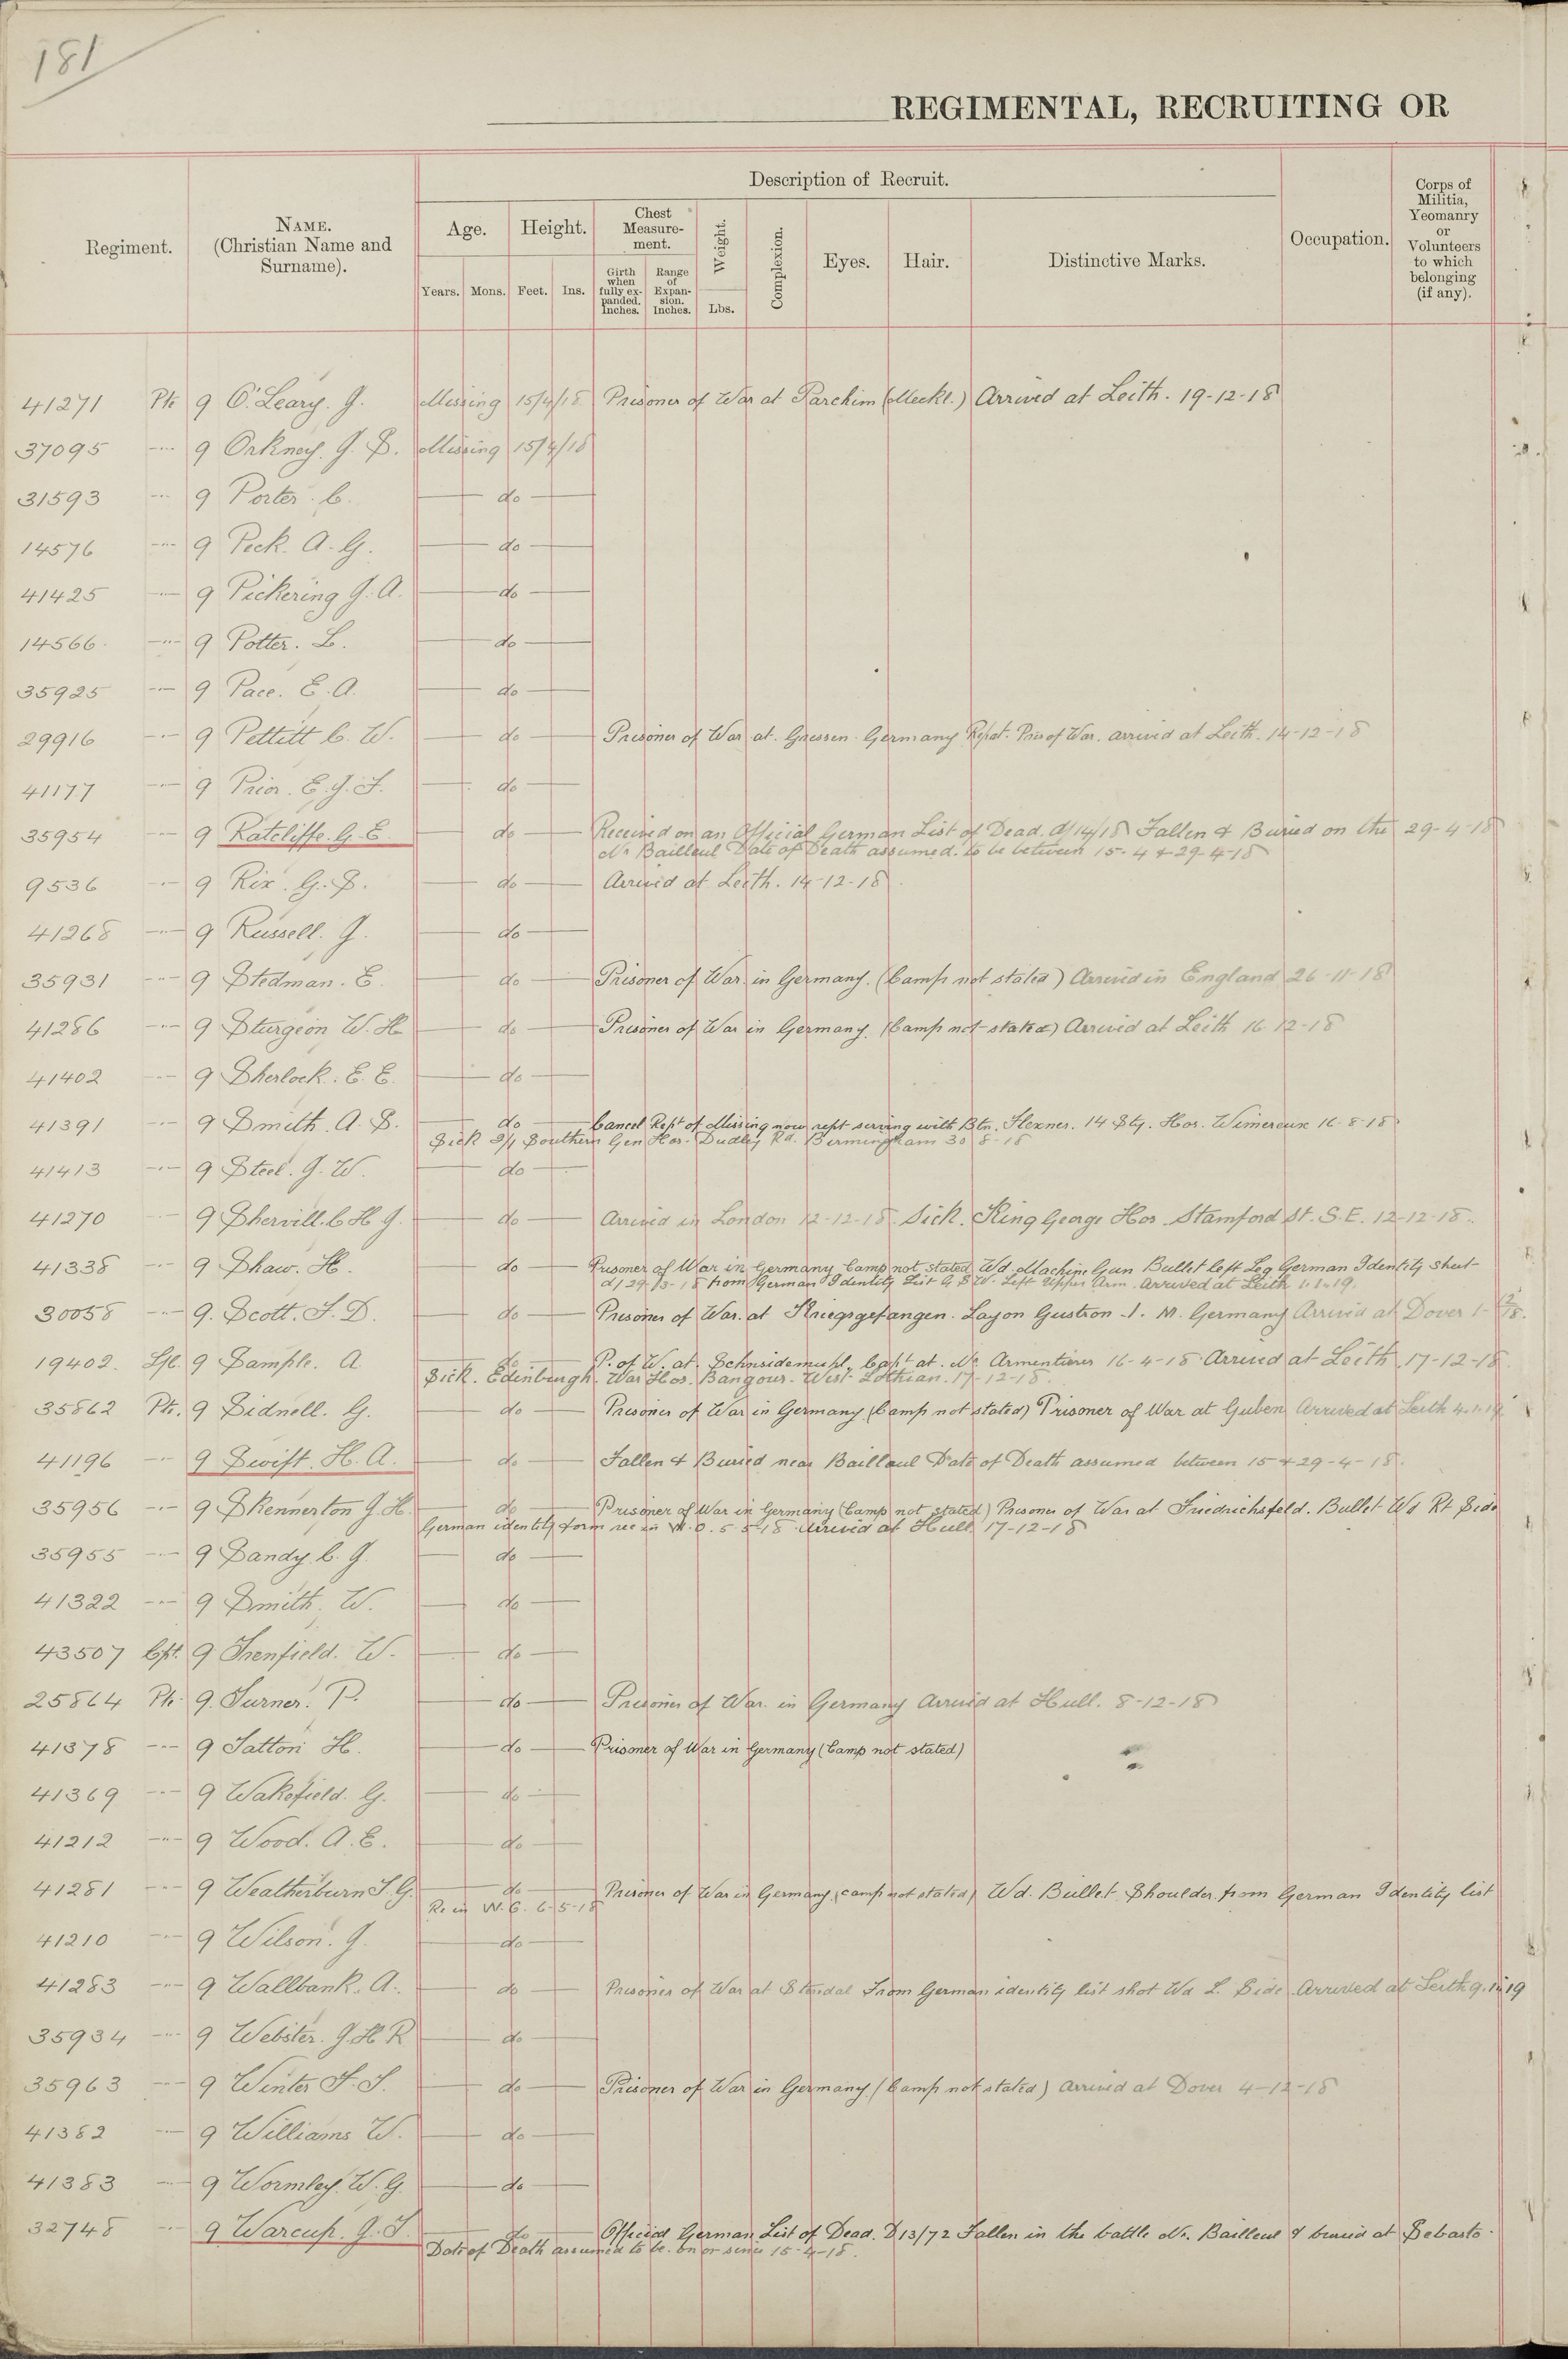 181
REGIMENTAL, RECRUITING OR
Description of Recruit.
Regiment.
NAME.
(Christian Name and
Surname).
Age.
Height.
Chest
Measure-
ment.
Weight.
Complexion.
Eyes.
Hair.
Distinctive Marks.
Occupation.
Corps of
Militia,
Yeomanry
or
Volunteers
to which
belonging
(if any).
Years.
Mons.
Feet.
Ins.
Girth
when
fully ex-
panded.
Inches.
Range
of
Expan-
sion.
Inches.
Lbs.
41271 Pte 9 O'Leary. J. Missing 15/4/18 Prisoner of War at Parchim (Meckl.) Arrived at Leith. 19-12-18
37095 -"- 9 Orkney. J. S. Missing 15/4/18
31593 -"- 9 Porter. C. do
14576 -"- 9 Peck. A. G. do
41425 -"- 9 Pickering J. A. do
14566 -"- 9 Potter. L. do
35925 -"- 9 Pace. E. A. do
29916 -"- 9 Pettitt C. W. do Prisoner of War at Giessen Germany Repat. Pris of War. arrived at Leith. 14-12-18
41177 -"- 9 Prior. E. J. F. do
35954 -"- 9 Ratcliffe. G. E. do Received on an Official German List of Dead. d/14/18 Fallen & Buried on the 29-4-18
Nr Bailleul Date of Death assumed. to be between 15-4 & 29-4-18
9536 -"- 9 Rix. G. S. do Arrived at Leith. 14-12-18
41268 -"- 9 Russell. J. do
35931 -"- 9 Stedman. E. do Prisoner of War in Germany. (Camp not stated) Arrived in England 26-11-18
41286 -"- 9 Sturgeon W. H. do Prisoner of War in Germany. (Camp not stated) Arrived at Leith 16-12-18
41402 -"- 9 Sherlock. E. E. do
41391 -"- 9 Smith. A. S. do Cancel Rept of Missing now rept serving with Btn. 14 Sty. Hos. Wimereux 16-8-18
Sick 2/1 Southern Gen Hos. Dudley Rd. Birmingham 30-8-18
41413 -"- 9 Steel. J. W. do
41270 -"- 9 Shervill. C. H. J. do Arrived in London 12-12-18. Sick. King George Hos. Stamford St. S.E. 12-12-18.
41338 -"- 9 Shaw. H. do Prisoner of War in Germany Camp not stated Wd. Machine Gun Bullet left Leg German Identity sheet
d/29-3-18 from German Identity List G.S.W. Left Upper Arm. Arrived at Leith 1.1.19.
30058 -"- 9. Scott. F. D. do Prisoner of War. at Kriegsgefangen. Layon Gustron. I. M. Germany Arrived at Dover 1-12/18.
19402. L/C 9 Sample. A do P. of W. at. Schneidemuhl, Capt at. Nr Armentieres 16-4-18 Arrived at Leith 17-12-18
Sick. Edinburgh War Hos. Bangour. West Lothian. 17-12-18.
35862 Pte. 9 Sidnell. G. do Prisoner of War in Germany (Camp not stated) Prisoner of War at Guben Arrived at Leith 4.1.19
41196 -"- 9 Swift. H. A. do Fallen & Buried near Baillaul Date of Death assumed between 15 & 29-4-18.
35956 -"- 9 Skennerton J. H. do Prisoner of War in Germany (Camp not stated) Prisoner of War at Friedrichsfeld. Bullet Wd Rt Side
German identity form rec in W.O. 5-5-18 Arrived at Hull 17-12-18
35955 -"- 9 Sandy C. J. do
41322 -"- 9 Smith. W. do
43507 Cpl. 9 Trenfield. W. do
25864 Pte. 9. Turner. P. do Prisoner of War. in Germany Arrived at Hull. 8-12-18
41378 -"- 9 Tatton H. do Prisoner of War in Germany (Camp not stated)
41369 -"- 9 Wakefield. G. do
41212 -"- 9 Wood. A. E. do
41281 -"- 9 Weatherburn T. G. do Prisoner of War in Germany (camp not stated) Wd. Bullet Shoulder from German Identity list
Re in W.O. 6-5-18
41210 -"- 9 Wilson. J. do
41283 -"- 9 Wallbank. A. do Prisoner of War at Stendal From German identity list shot Wd L. Side Arrived at Leith 9.1.19
35934 -"- 9 Webster. J. H. R do
35963 -"- 9 Winter F. S. do Prisoner of War in Germany (Camp not stated) arrived at Dover 4-12-18
41382 -"- 9 Williams W. do
41383 -"- 9 Wormley. W. G. do
32748 -"- 9 Warcup. J. T. do Official German List of Dead. D13/72 Fallen in the battle Nr. Bailleul & buried at Sebasto.
Date of Death assumed to be. on or since 15-4-18.